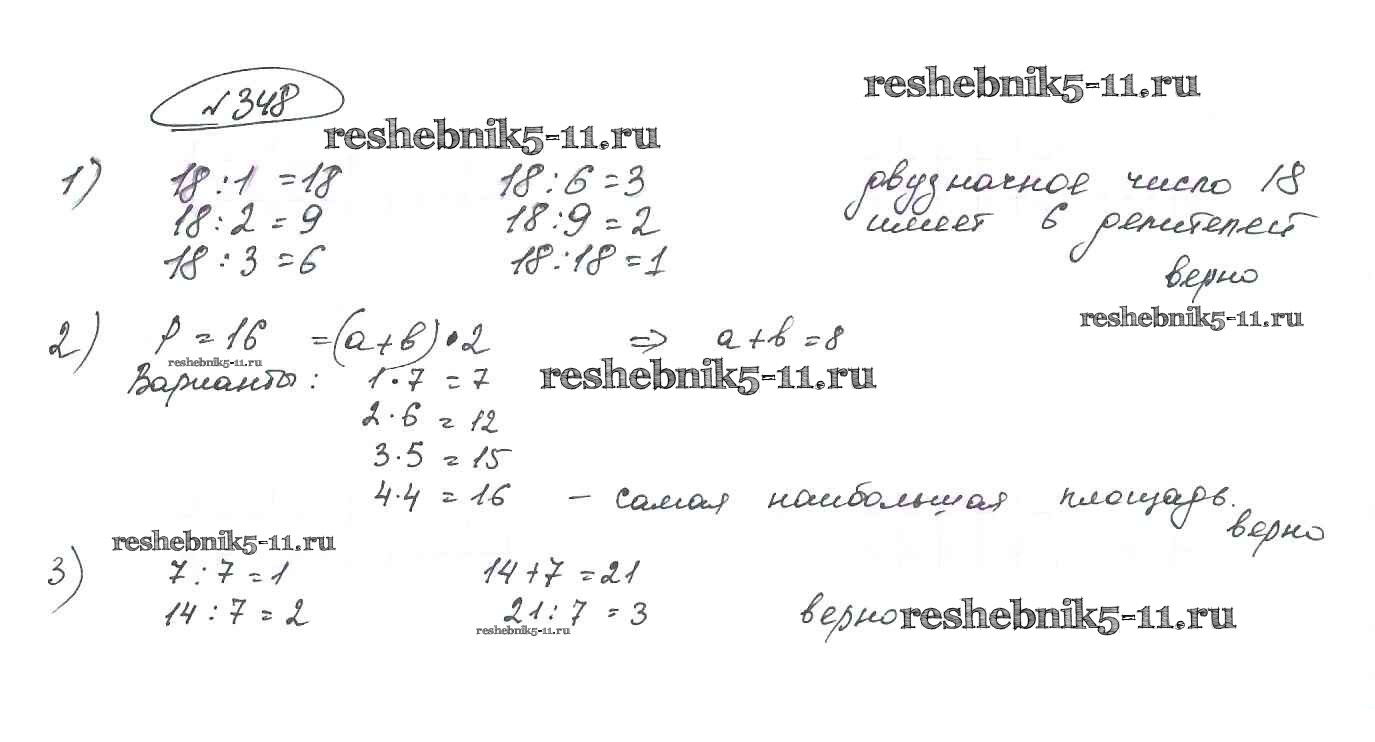 №348
reshebnik5-11.ru
reshebnik5-11.ru
1) 18:1 =18 18:6=3 двузначное число 18
18:2=9 18:9=2 имеет 6 делителей
18:3=6 18:18=1 верно
reshebnik5-11.ru
2) P=16 =(a+b)•2 => a+b=8
reshebnik5-11.ru
Варианты: 1·7=7 reshebnik5-11.ru
2·6=12
3·5=15
4·4=16 – самая наибольшая площадь.
верно
reshebnik5-11.ru
3) 7:7=1 14+7=21
14:7=2 21:7=3 верно reshebnik5-11.ru
reshebnik5-11.ru